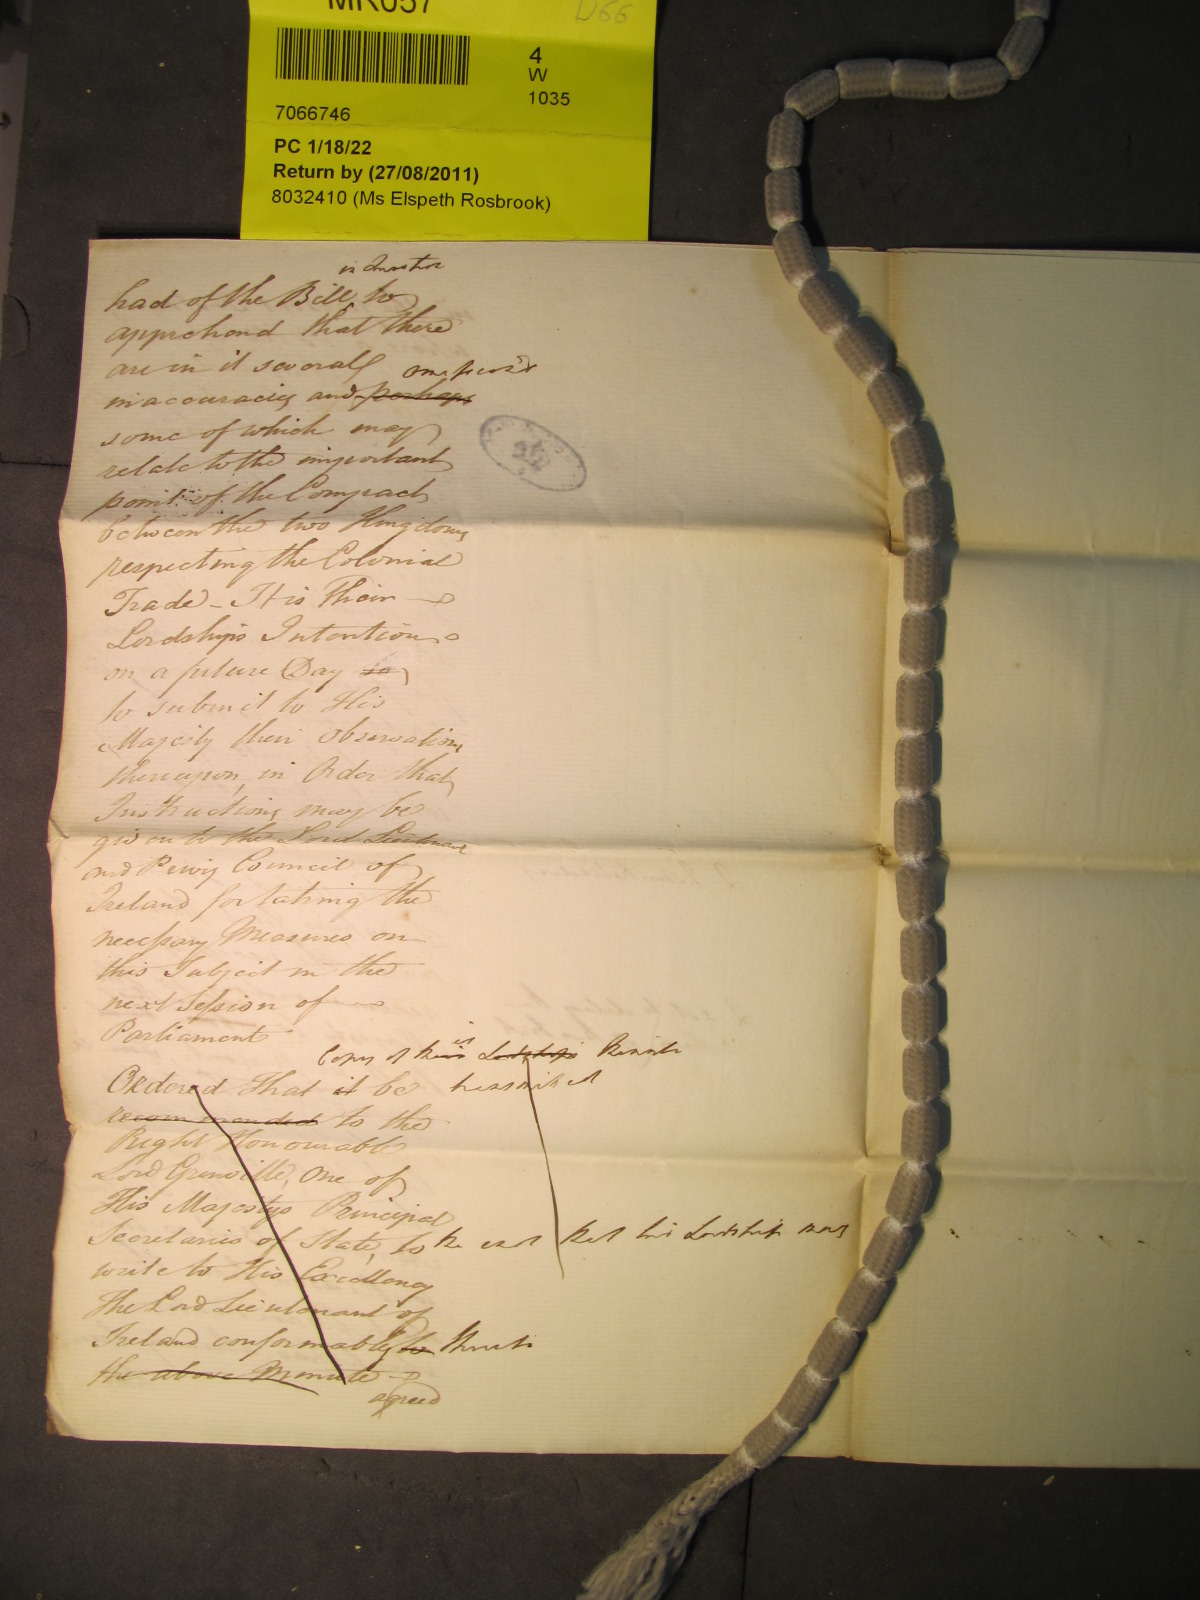 MR057
D66
4
W
1035
7066746
PC 1/18/22
Return by (27/08/2011)
8032410 (Ms Elspeth Rosbrook)
in Question
had of the Bill, to
apprehend that there
are in it several
inaccuracies and perhaps
some of which may
relate to the important
point of the Compact
between the two Kingdoms
respecting the Colonial
Trade - It is Their
Lordships Intention
on a future Day to
to submit to His
Majesty their observations
thereupon, in Order that
Instructions may be
given to the Lord Lieutenant
and Privy Council of
Ireland for taking the
necessary Measures on
this Subject in the
next Session of
Parliament
Copy of this Lordships Minute
Ordered that it be transmitted
recommended to the
Right Honourable
Lord Grenville, One of
His Majestys Principal
Secretaries of State, to the end that his Lordship may
write to His Excellency
the Lord Lieutenant of
Ireland conformably to thereto
the above Minute
agreed